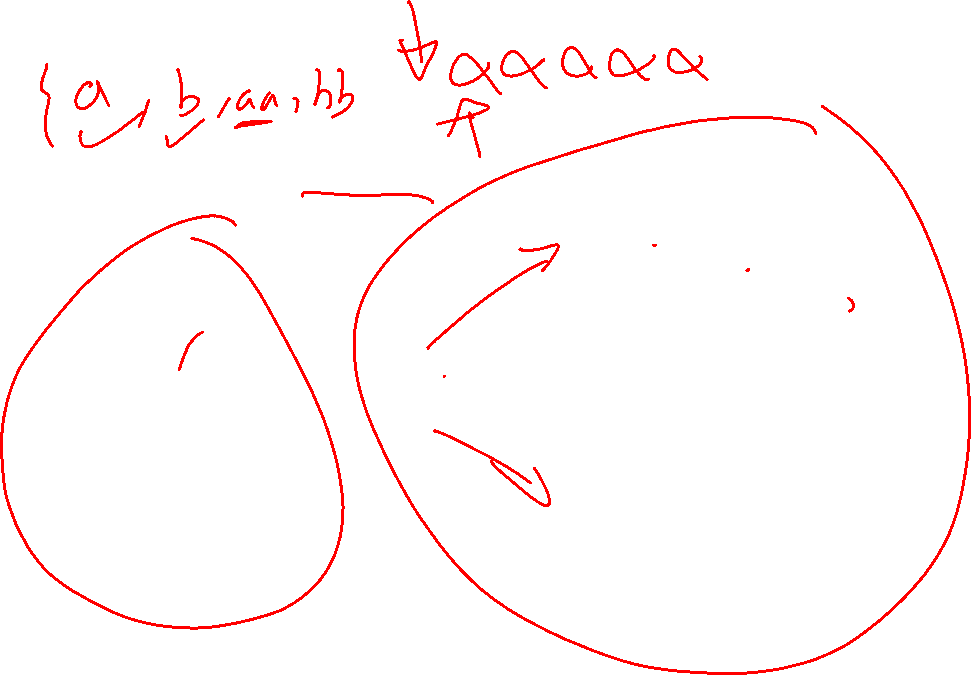 {a, b, aa, bb aaaaa